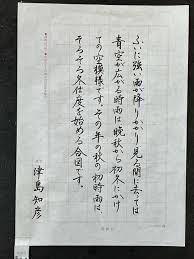 ふいに強い雨が降りかかり見る間に去っては
青空が広がる時雨は晩秋から初冬にかけ
ての空模様です。その年の秋の初時雨は、
そろそろ冬仕度を始める合図です。
津島知彦